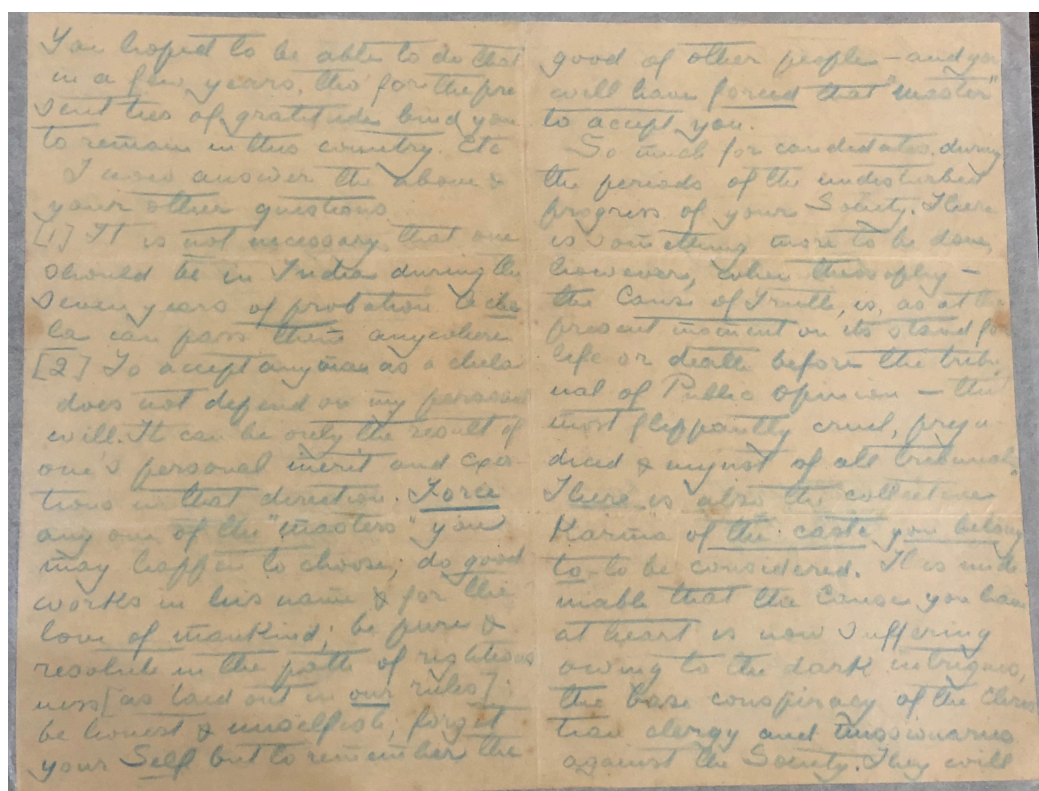 You hoped to be able to do that
in a few years, tho' for the pre
sent ties of gratitude bind you
to remain in this country. Etc
I now answer the above &
your other questions.
[1] It is not necessary that one
should be in India during the
seven years of probation. A che
la can pass them anywhere
[2] To accept any man as a chela
does not depend on my personal
will. It can be only the result of
one's personal merit and exer-
tions in that direction. Force
any one of the "Masters" you
may happen to choose; do good
works in his name & for the
love of mankind; be pure &
resolute in the path of righteous
ness [as laid out in our rules];
be honest & unselfish; forget
your Self but to remember the
good of other people – and you
will have forced that "Master"
to accept you.
So much for candidates during
the periods of the undisturbed
progress of your Society. There
is something more to be done,
however, when theosophy –
the Cause of Truth, is, as at the
present moment on its stand for
life or death before the tribu
nal of Public Opinion – that
most flippantly cruel, preju-
diced & unjust of all tribunals.
There is also the collective
Karma of the caste you belong
to – to be considered. It is unde
niable that the Cause you have
at heart is now suffering
owing to the dark intrigues,
the base conspiracy of the Chris
tian clergy and missionaries
against the Society. They will